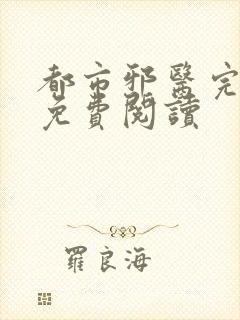 都市邪醫完
免費閱讀
羅良海